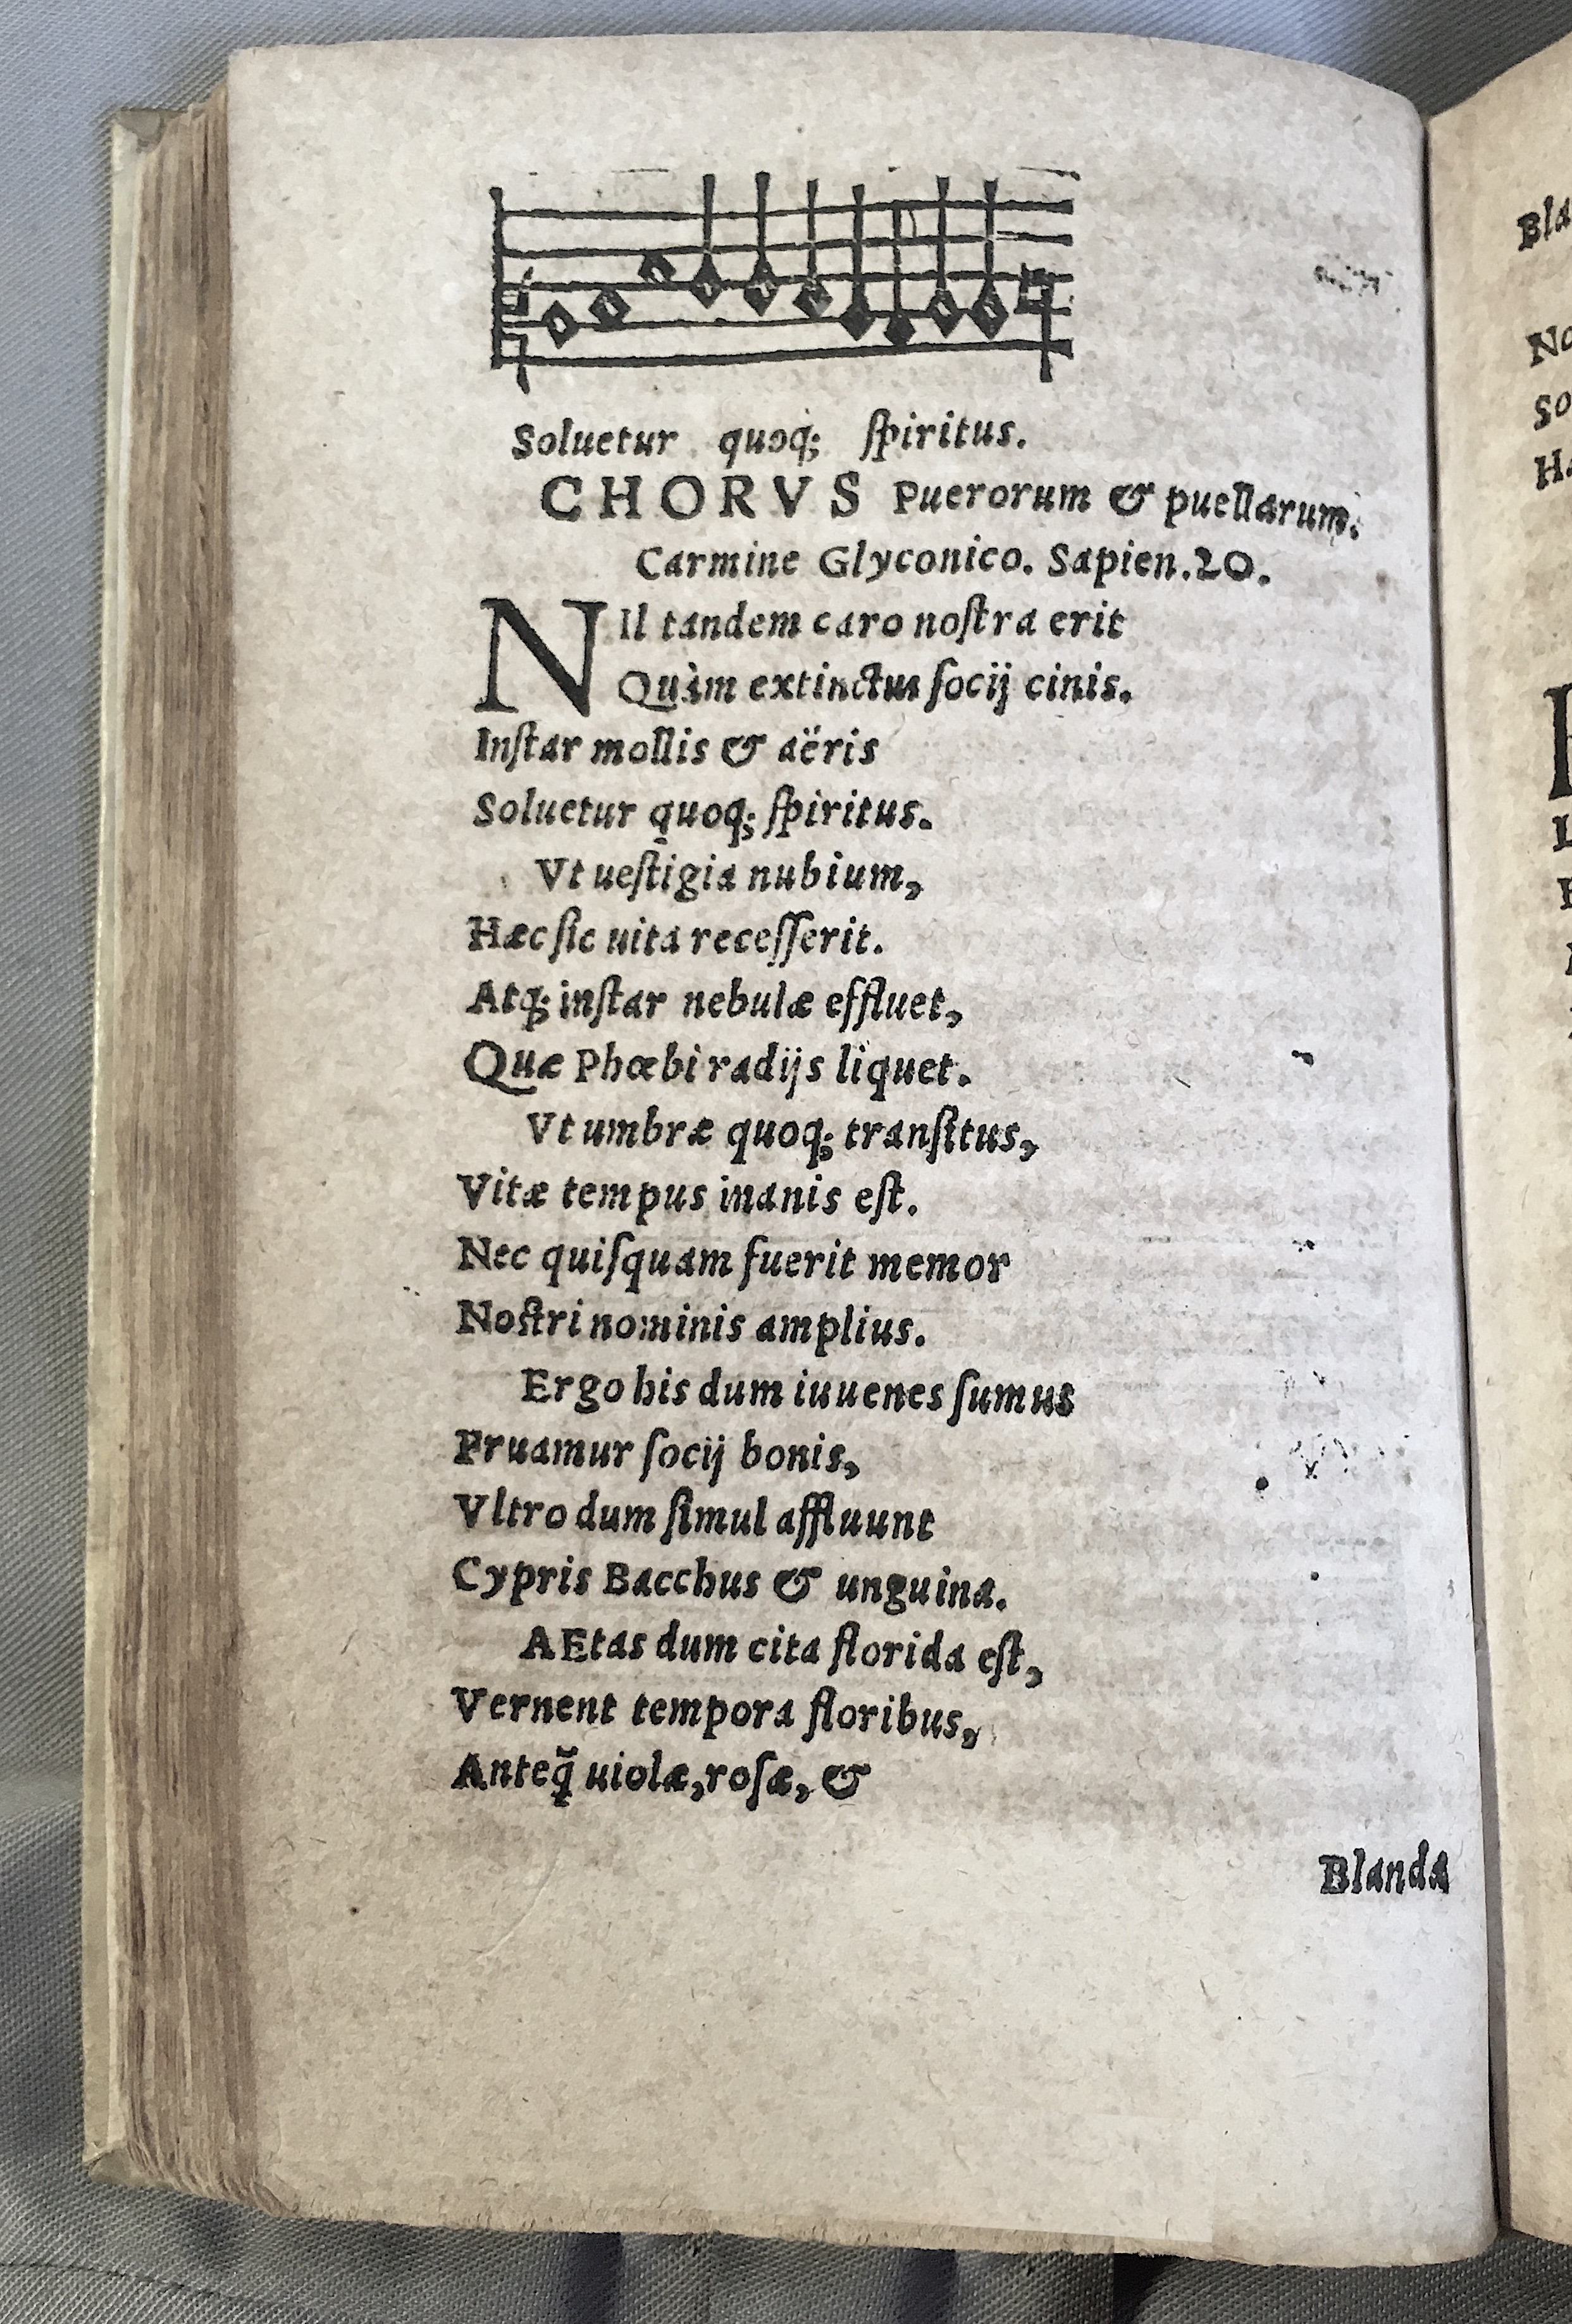 Soluetur quoq; ſpiritus.
CHORVS Puerorum & puellarum.
Carmine Glyconico. Sapien.20.
NIl tandem caro noſtra erit
Quàm extinctus ſocij cinis.
Inſtar mollis & aëris
Soluetur quoq; ſpiritus.
Vt ueſtigia nubium,
Hæc ſic uita receſſerit.
Atq; inſtar nebulæ effluet,
Quæ Phœbi radijs liquet.
Vt umbræ quoq; tranſitus,
Vitæ tempus inanis eſt.
Nec quiſquam fuerit memor
Noſtri nominis amplius.
Ergo his dum iuuenes ſumus
Fruamur ſocij bonis,
Vltro dum ſimul affluunt
Cypris Bacchus & unguina.
AEtas dum cita florida eſt,
Vernent tempora floribus,
Anteq̃ uiolæ, roſæ, &
Blanda
Bla
No
So
Ha
L